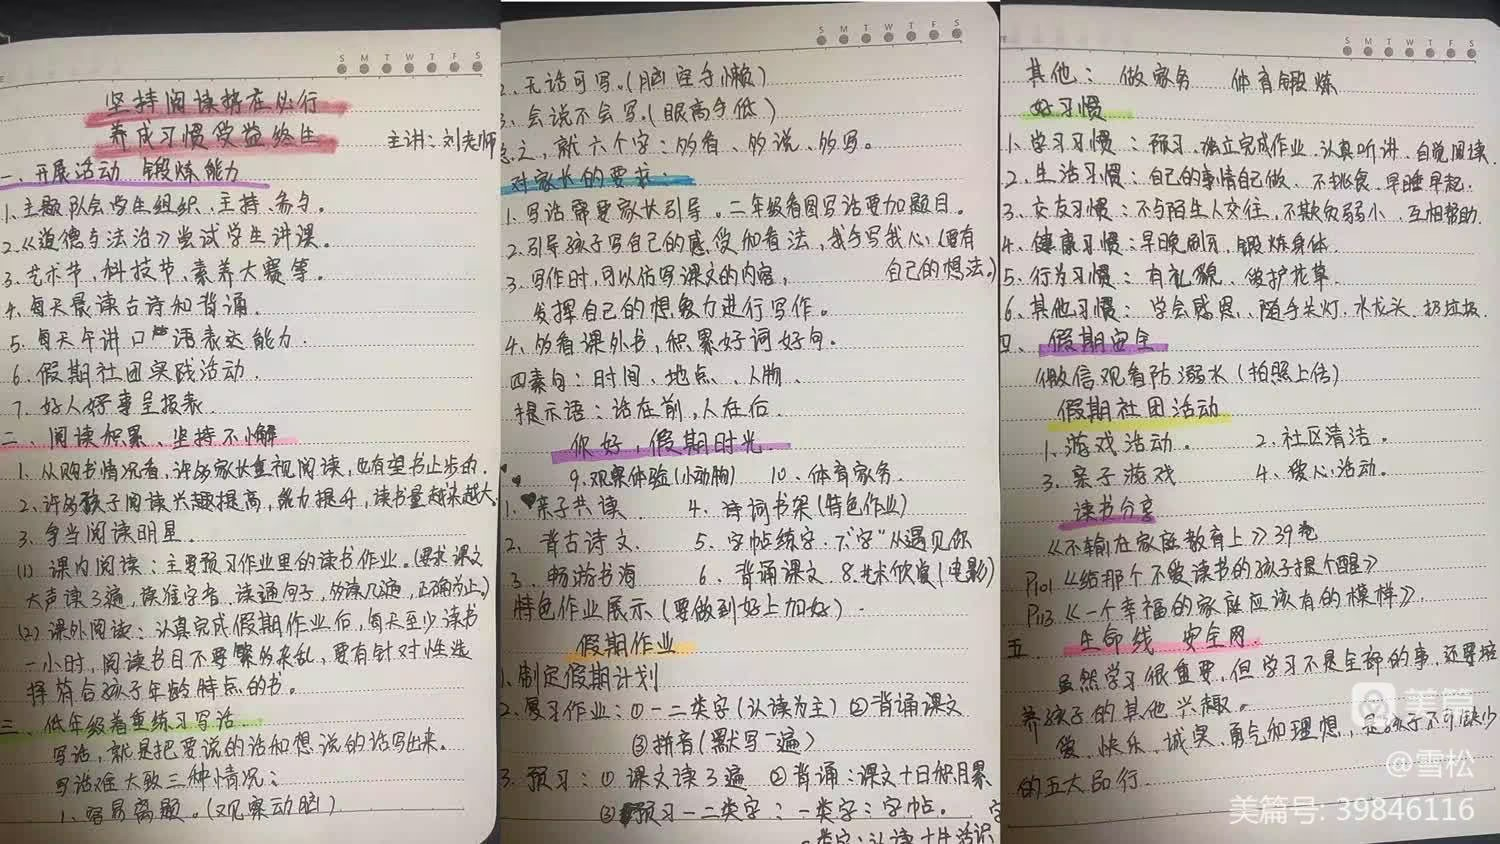 S M T W T F S
坚持阅读势在必行
养成习惯受益终生
主讲:刘老师
一、开展活动 锻炼能力
1、主题队会学生组织、主持、参与。
2、《道德与法治》尝试学生讲课。
3、艺术节、科技节、素养大赛等。
4、每天晨读古诗和背诵。
5、每天午讲口 语表达能力.
6、假期社团实践活动.
7、好人好事呈报表.
二、阅读积累、坚持不懈
1、从购书情况看,许多家长重视阅读,也有望书止步的.
2、许多孩子阅读兴趣提高,能力提升,读书量越来越大.
3、争当阅读明星.
(1) 课内阅读:主要预习作业里的读书作业。(要求课文
大声读3遍,读准字音、读通句子,多读几遍,正确为止。)
(2) 课外阅读:认真完成假期作业后,每天至少读书
一小时,阅读书目不要繁多杂乱,要有针对性选
择符合孩子年龄特点的书。
三、低年级着重练习写话.
写话,就是把要说的话和想说的话写出来.
写话难大致三种情况:
1、容易离题。(观察动脑)
S M T W T F S
2、无话可写。(脑空手懒)
3、会说不会写。(眼高手低)
总之,就六个字:多看、多说、多写。
对家长的要求.
1、写话需要家长引导。二年级看图写话要加题目.
2、引导孩子写自己的感受和看法,我手写我心(要有
自己的想法。)
3、写作时,可以仿写课文的内容,
发挥自己的想象力进行写作。
4、多看课外书,积累好词好句。
四素句:时间、地点、人物.
提示语:话在前,人在后.
你好,假期时光.
9、观察体验(小动物) 10、体育家务.
1、亲子共读 4、诗词书架(特色作业)
2、背古诗文. 5、字帖练字.下"字"从遇见你
3、畅游书海 6、背诵课文 8、艺术欣赏(电影)
特色作业展示(要做到好上加好).
假期作业
1、制定假期计划
2、复习作业:①一二类字(认读为主) ②背诵课文
③拼音(默写一遍)
3、预习:① 课文读3遍 ②背诵:课文十日积月累
③预习一二类字:一类字:字帖。
S M T W T F S
其他: 做家务 体育锻炼
好习惯
1、学习习惯:预习、独立完成作业、认真听讲、自觉阅读.
2、生活习惯:自己的事情自己做、不挑食、早睡早起.
3、交友习惯:不与陌生人交往、不欺负弱小、互相帮助.
4、健康习惯:早晚刷牙、锻炼身体.
5、行为习惯:有礼貌、爱护花草.
6、其他习惯: 学会感恩、随手关灯、水龙头、扔垃圾.
四、假期安全
微信观看防溺水(拍照上传)
假期社团活动
1、游戏活动. 2、社区清洁.
3、亲子游戏 4、爱心活动.
读书分享
《不输在家庭教育上》39卷
P101《给那个不爱读书的孩子提个醒》
P113《一个幸福的家庭应该有的模样》.
五、生命线 安全网.
虽然学习很重要,但学习不是全部的事,还要培
养孩子的其他兴趣。
爱、快乐、诚实、勇气和理想,是孩子不可缺少
的五大品行.
美篇
@雪松
美篇号: 39846116